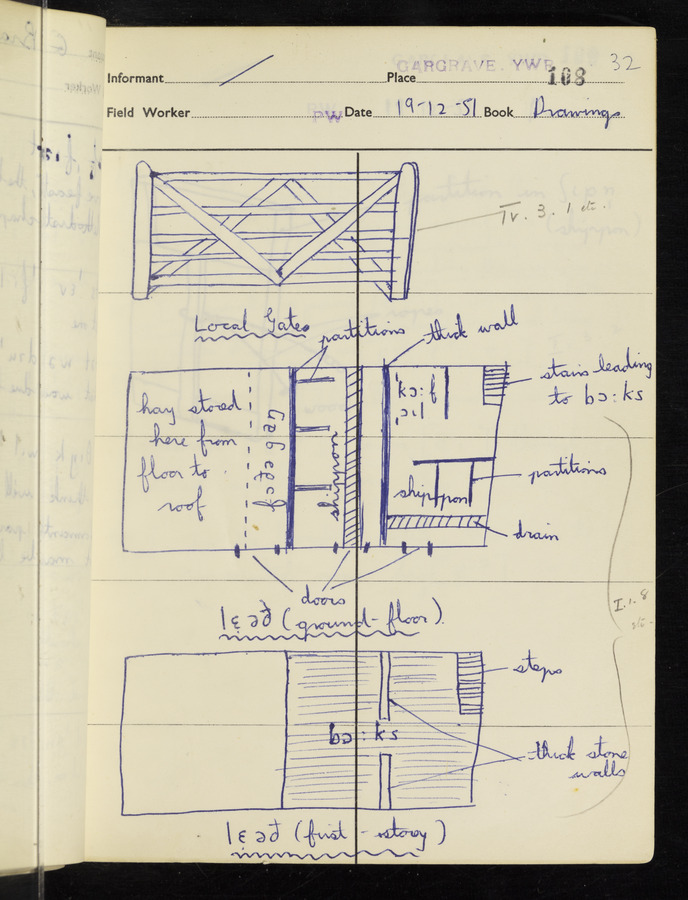 GARGRAVE. YWR
32
Informant / Place 108
Field Worker PW Date 19-12-51 Book Drawings
IV. 3. 1 etc.
Local Gates
partitions
thick wall
stairs leading
to bɔ:ks
hay stored
here from
floor to
roof
shippon
shippon
partitions
drain
doors
I. 1. 8
lɛəð (ground-floor).
steps
bɔ:ks
thick stone
walls
lɛəð (first-storey)